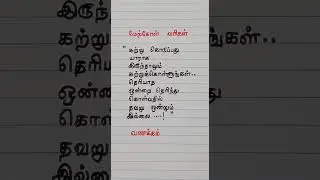 மேற்கோள் வரிகள்
" கற்று கொடுப்பது
யாராக
இருந்தாலும்
கற்றுக்கொள்ளுங்கள்..
தெரியாத
ஒன்றை தெரிந்து
கொள்வதில்
தவறு ஒன்றும்
இல்லை ....! "
வணக்கம்